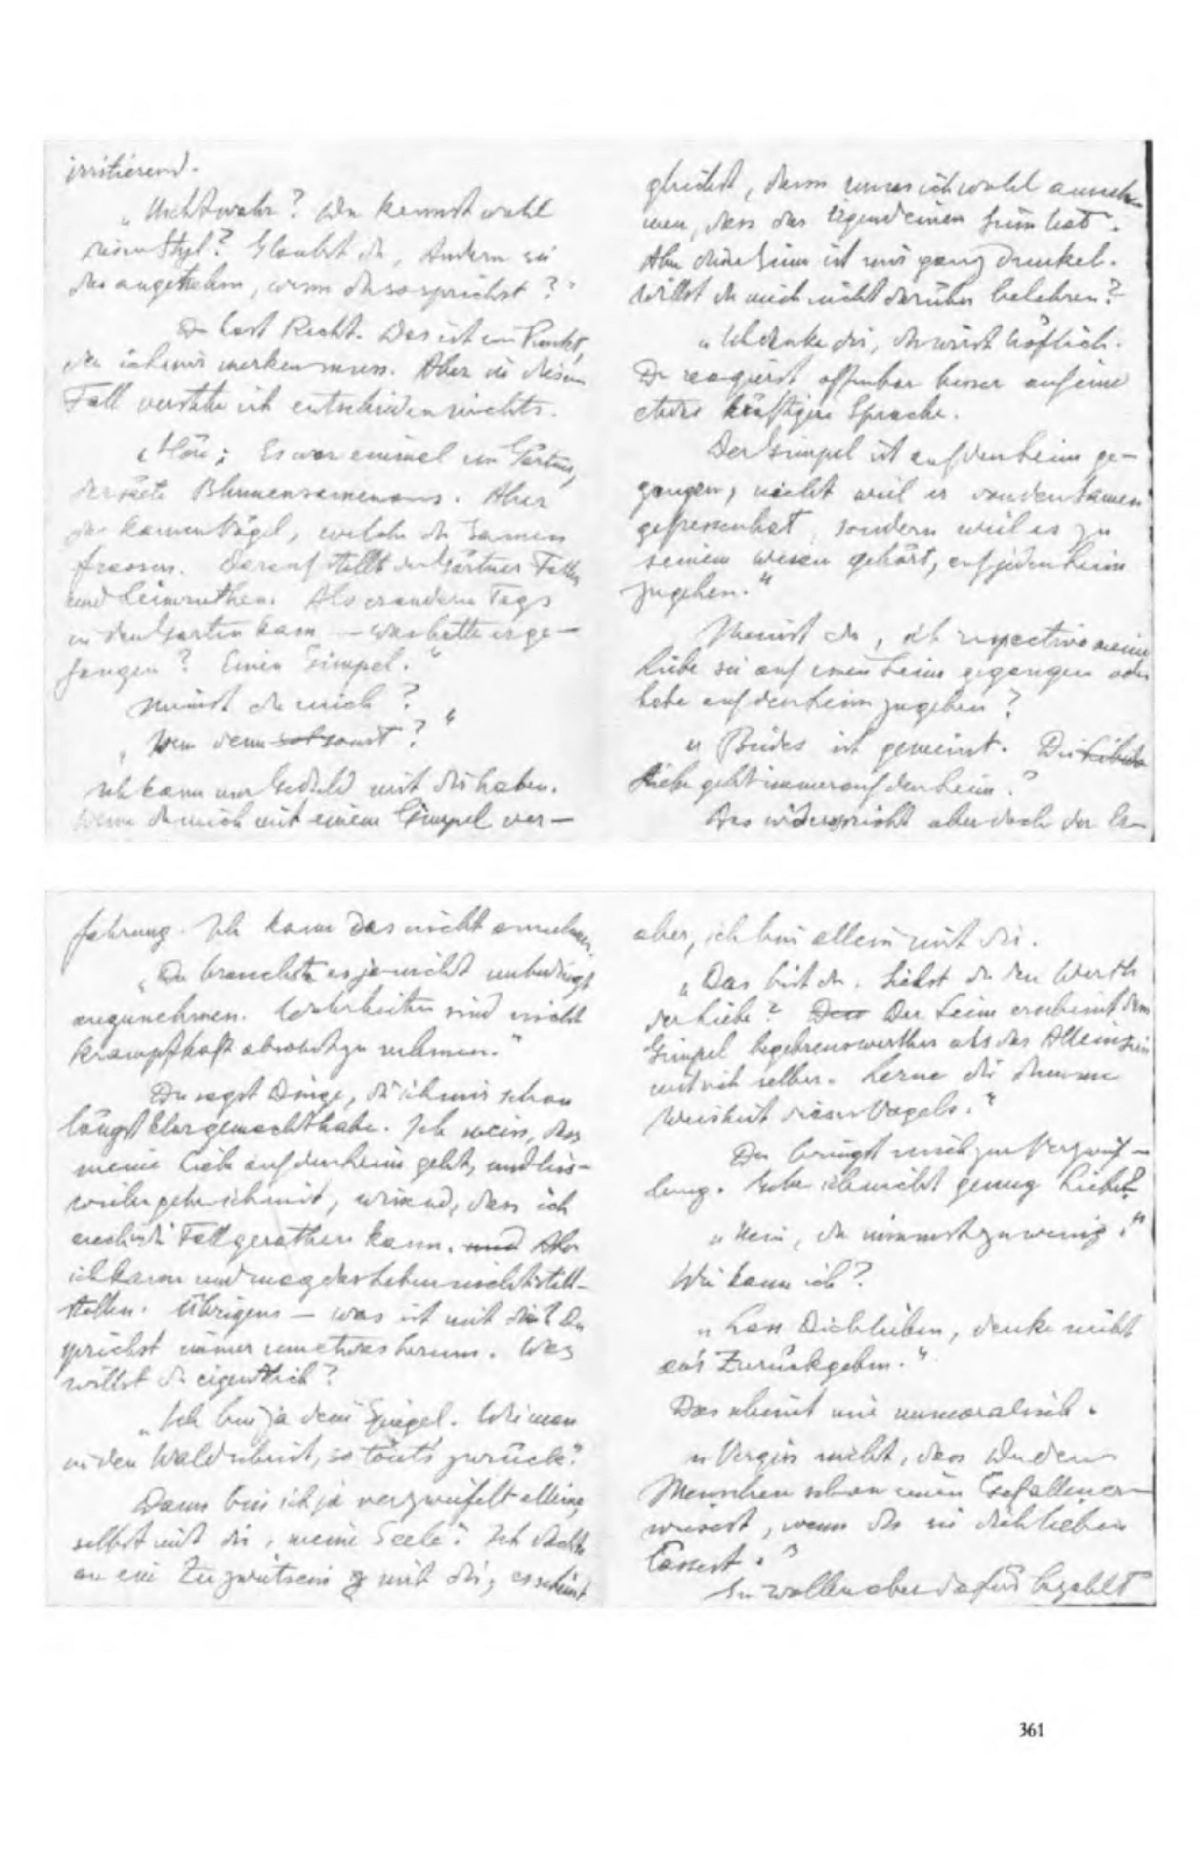 irritierend.
„Nicht wahr? Du kennst wohl
diesen Styl? Glaubst du, Andern sei
das angenehm, wenn du so sprichst?"
Du hast Recht. Das ist ein Punkt,
den ich mir merken muss. Aber in diesem
Fall verstehe ich entschieden nichts.
„Höre: Es war einmal ein Gärtner,
der säete Blumensamen aus. Aber
da kamen Vögel, welche die Samen
frassen. Darauf stellt der Gärtner Fallen
und Leimruthen. Als er andern Tags
in den Garten kam — was hatte er ge-
fangen? Einen Gimpel."
Meinst du mich?
„Wen denn sonst?"
Ich kann nur Geduld mit dir haben.
Wenn du mich mit einem Gimpel ver-
gleichst, dann muss ich wohl anneh-
men, dass das irgend einen Sinn hat.
Aber dein Sinn ist mir ganz dunkel.
Willst du mich nicht darüber belehren?
„Ich danke dir, du wirst höflich.
Du reagierst offenbar besser auf eine
etwas kräftigere Sprache.
Der Gimpel ist auf den Leim ge-
gangen, nicht weil er von den Samen
gefressen hat, sondern weil es zu
seinem Wesen gehört, auf jeden Leim
zu gehen."
Meinst du, ich respective meine
Liebe sei auf einen Leim gegangen oder
habe auf den Leim zu gehen?
„Beides ist gemeint. Die
Liebe geht immer auf den Leim."
Das widerspricht aber doch der Er-
fahrung. Ich kann das nicht annehmen.
„Du brauchst es ja nicht unbedingt
anzunehmen. Wahrheiten sind nicht
krampfhaft absolut zu nehmen."
Du sagst Dinge, die ich mir schon
längst klar gemacht habe. Ich weiss, dass
meine Liebe auf den Leim geht, und hin-
wieder gehe ich mit, wissend, dass ich
auch in die Falle gerathen kann. Aber
ich kann und mag das Leben nicht still-
stellen. Übrigens — was ist mit dir? Du
sprichst immer um etwas herum. Was
willst du eigentlich?
„Ich bin ja dein Spiegel. Wie man
in den Wald schreit, so tönt's zurück."
Dann bin ich ja verzweifelt alleine,
selbst mit dir, meine Seele! Ich dachte
an ein Zuzweitsein mit dir, es scheint
aber, ich bin allein mit dir.
„Das bist du. Siehst du den Werth
der Liebe? Der Leim erscheint dem
Gimpel begehrenswerther als das Alleinsein
mit sich selber. Lerne die
Weisheit dieses Vogels."
Du bringst mich zur Verzweif-
lung. Gebe ich nicht genug Liebe?
„Nein, du nimmst zu wenig."
Wie kann ich?
„Lass Dich lieben, denke nicht
an's Zurückgeben."
Das scheint mir unmoralisch.
„Vergiss nicht, dass Du den
Menschen schon einen Gefallen er-
weisest, wenn du sie dich lieben
lässest."
Sie wollen aber dafür bezahlt
361